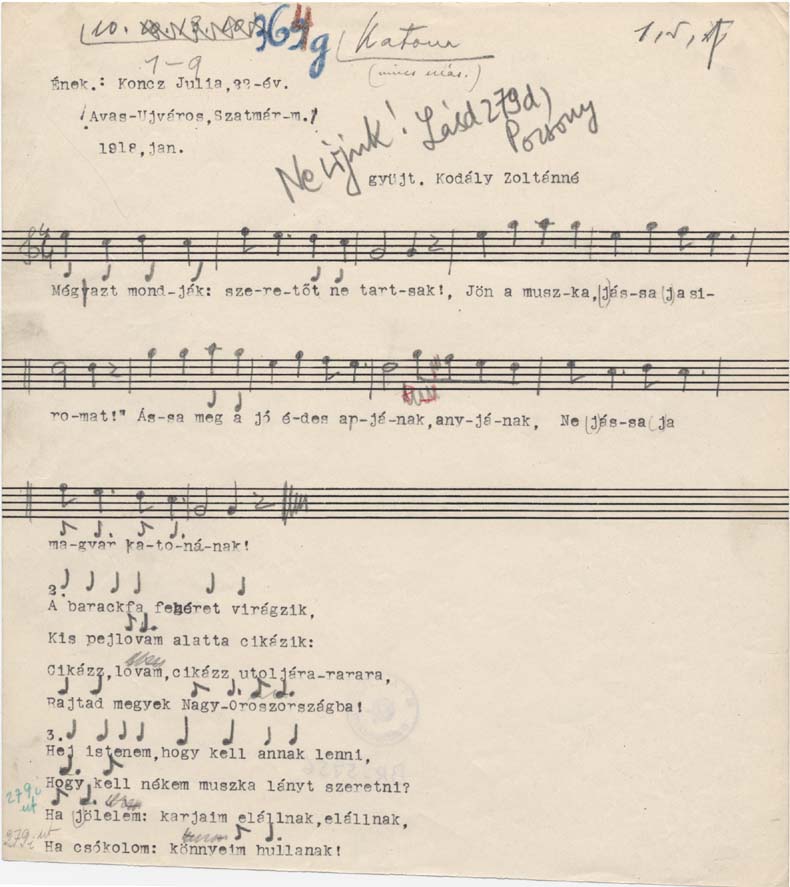 364g Katona 1, 5,
(nincs más.)
1-9
Ének.: Koncz Julia,22-év.
/Avas-Ujváros,Szatmár-m./
1918,jan.
Ne írjuk! Lásd 279d)
Pozsony
gyüjt. Kodály Zoltánné
Mégyazt mond-ják: sze-re-tőt ne tart-sak!, Jön a musz-ka,(j)ás-sa (j)a si-
ro-mat!" Ás-sa meg a jó é-des ap-já-nak,any-já-nak, Ne (j)ás-sa (j)a
ma-gyar ka-to-ná-nak!
2.
A barackfa fehéret virágzik,
Kis pejlovam alatta cikázik:
Cikázz,lovam,cikázz utoljára-rarara,
Rajtad megyek Nagy-Oroszországba!
3.
Hej istenem,hogy kell annak lenni,
Hogy kell nékem muszka lányt szeretni?
279i
Ha (j)ölelem: karjaim elállnak,elállnak,
279i
Ha csókolom: könnyeim hullanak!